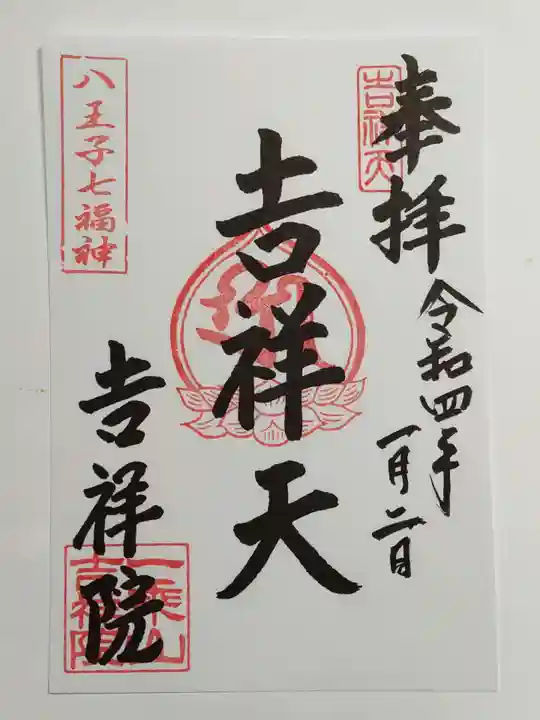 奉拝
吉祥天
令和四年
一月二日
吉祥天
八王子七福神
吉祥院
一乗山
吉祥院